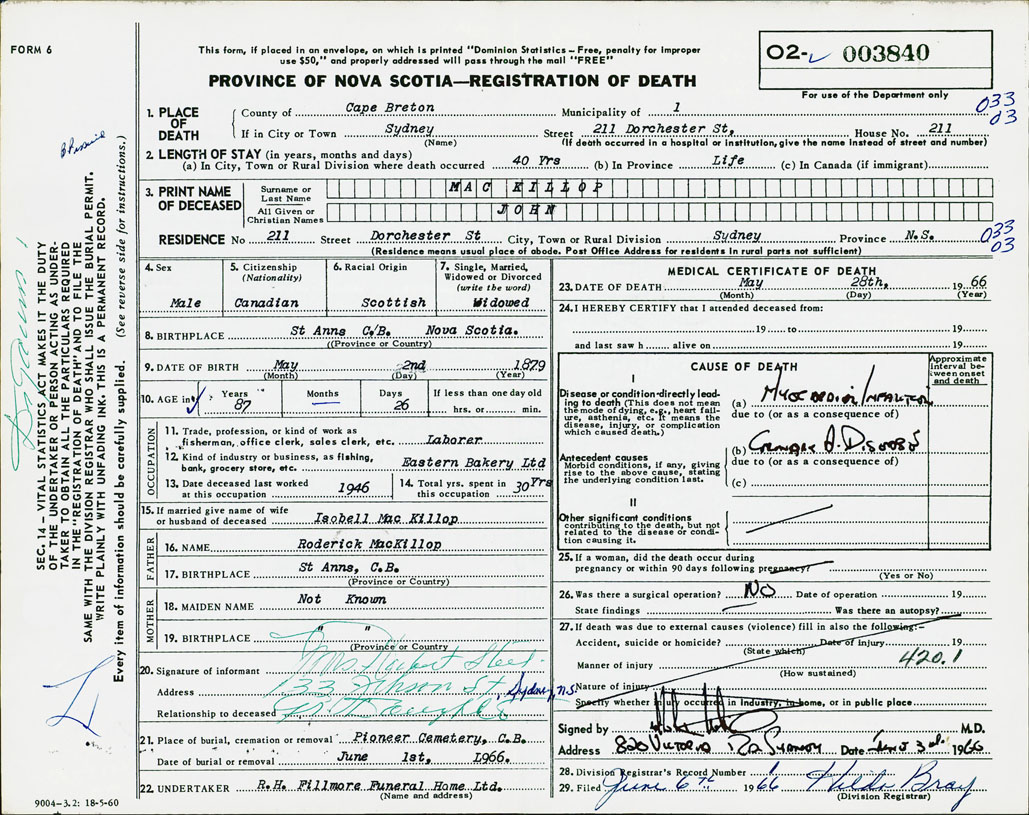 FORM 6
This form, if placed in an envelope, on which is printed "Dominion Statistics – Free, penalty for improper
use $50," and properly addressed will pass through the mail "FREE"
PROVINCE OF NOVA SCOTIA—REGISTRATION OF DEATH
02- 003840
For use of the Department only
033
03
SEC. 14 – VITAL STATISTICS ACT MAKES IT THE DUTY
OF THE UNDERTAKER OR PERSON ACTING AS UNDER-
TAKER TO OBTAIN ALL THE PARTICULARS REQUIRED
IN THE "REGISTRATION OF DEATH" AND TO FILE THE
SAME WITH THE DIVISION REGISTRAR WHO SHALL ISSUE THE BURIAL PERMIT.
WRITE PLAINLY WITH UNFADING INK. THIS IS A PERMANENT RECORD.
Every item of information should be carefully supplied. (See reverse side for instructions.)
1. PLACE OF DEATH
County of Cape Breton Municipality of 1
If in City or Town Sydney Street 211 Dorchester St, House No. 211
(Name) (If death occurred in a hospital or institution, give the name instead of street and number)
2. LENGTH OF STAY (in years, months and days)
(a) In City, Town or Rural Division where death occurred 40 Yrs (b) In Province Life (c) In Canada (if immigrant)
3. PRINT NAME OF DECEASED
Surname or Last Name MAC KILLOP
All Given or Christian Names JOHN
RESIDENCE No 211 Street Dorchester St City, Town or Rural Division Sydney Province N.S.
033
03
(Residence means usual place of abode. Post Office Address for residents in rural parts not sufficient)
4. Sex
Male
5. Citizenship
(Nationality)
Canadian
6. Racial Origin
Scottish
7. Single, Married,
Widowed or Divorced
(write the word)
Widowed
8. BIRTHPLACE St Anns C.B. Nova Scotia.
((Province or Country)
9. DATE OF BIRTH May 2nd 1879
(Month) (Day) (Year)
10. AGE in Years Months Days If less than one day old
87 26 hrs. or min.
OCCUPATION
11. Trade, profession, or kind of work as
fisherman, office clerk, sales clerk, etc. Laborer
12. Kind of industry or business, as fishing,
bank, grocery store, etc. Eastern Bakery Ltd
13. Date deceased last worked
at this occupation 1946
14. Total yrs. spent in
this occupation 30 Yrs
15. If married give name of wife
or husband of deceased Isobell Mac Killop
FATHER
16. NAME Roderick MacKillop
17. BIRTHPLACE St Anns, C.B.
(Province or Country)
MOTHER
18. MAIDEN NAME Not Known
19. BIRTHPLACE " "
(Province or Country)
20. Signature of informant Mrs
Address 133 St, Sydney, N.S.
Relationship to deceased Daughter
21. Place of burial, cremation or removal Pioneer Cemetery, C.B.
Date of burial or removal June 1st, 1966.
22. UNDERTAKER R.H. Fillmore Funeral Home Ltd.
(Name and address)
9004–3.2: 18-5-60
MEDICAL CERTIFICATE OF DEATH
23. DATE OF DEATH May 28th, 1966
(Month) (Day) (Year)
24. I HEREBY CERTIFY that I attended deceased from:
19 to 19
and last saw h alive on 19
CAUSE OF DEATH
Approximate
Interval be-
tween onset
and death
I
Disease or condition directly lead-
ing to death (This does not mean
the mode of dying, e.g., heart fail-
ure, asthenia, etc. It means the
disease, injury, or complication
which caused death.)
(a) Myocardial Infarction
due to (or as a consequence of)
Antecedent causes
Morbid conditions, if any, giving
rise to the above cause, stating
the underlying condition last.
(b) A. Disease
due to (or as a consequence of)
(c)
II
Other significant conditions
contributing to the death, but not
related to the disease or condi-
tion causing it.
25. If a woman, did the death occur during
pregnancy or within 90 days following pregnancy?
(Yes or No)
26. Was there a surgical operation? NO Date of operation 19
State findings Was there an autopsy?
27. If death was due to external causes (violence) fill in also the following:–
Accident, suicide or homicide? Date of injury 19
(State which)
420.1
Manner of injury
(How sustained)
Nature of injury
Specify whether injury occurred in industry, in home, or in public place
Signed by M.D.
Address 820 Victoria Rd Sydney Date June 3rd 1966
28. Division Registrar's Record Number
29. Filed June 6th 1966 Hilda Bray
(Division Registrar)